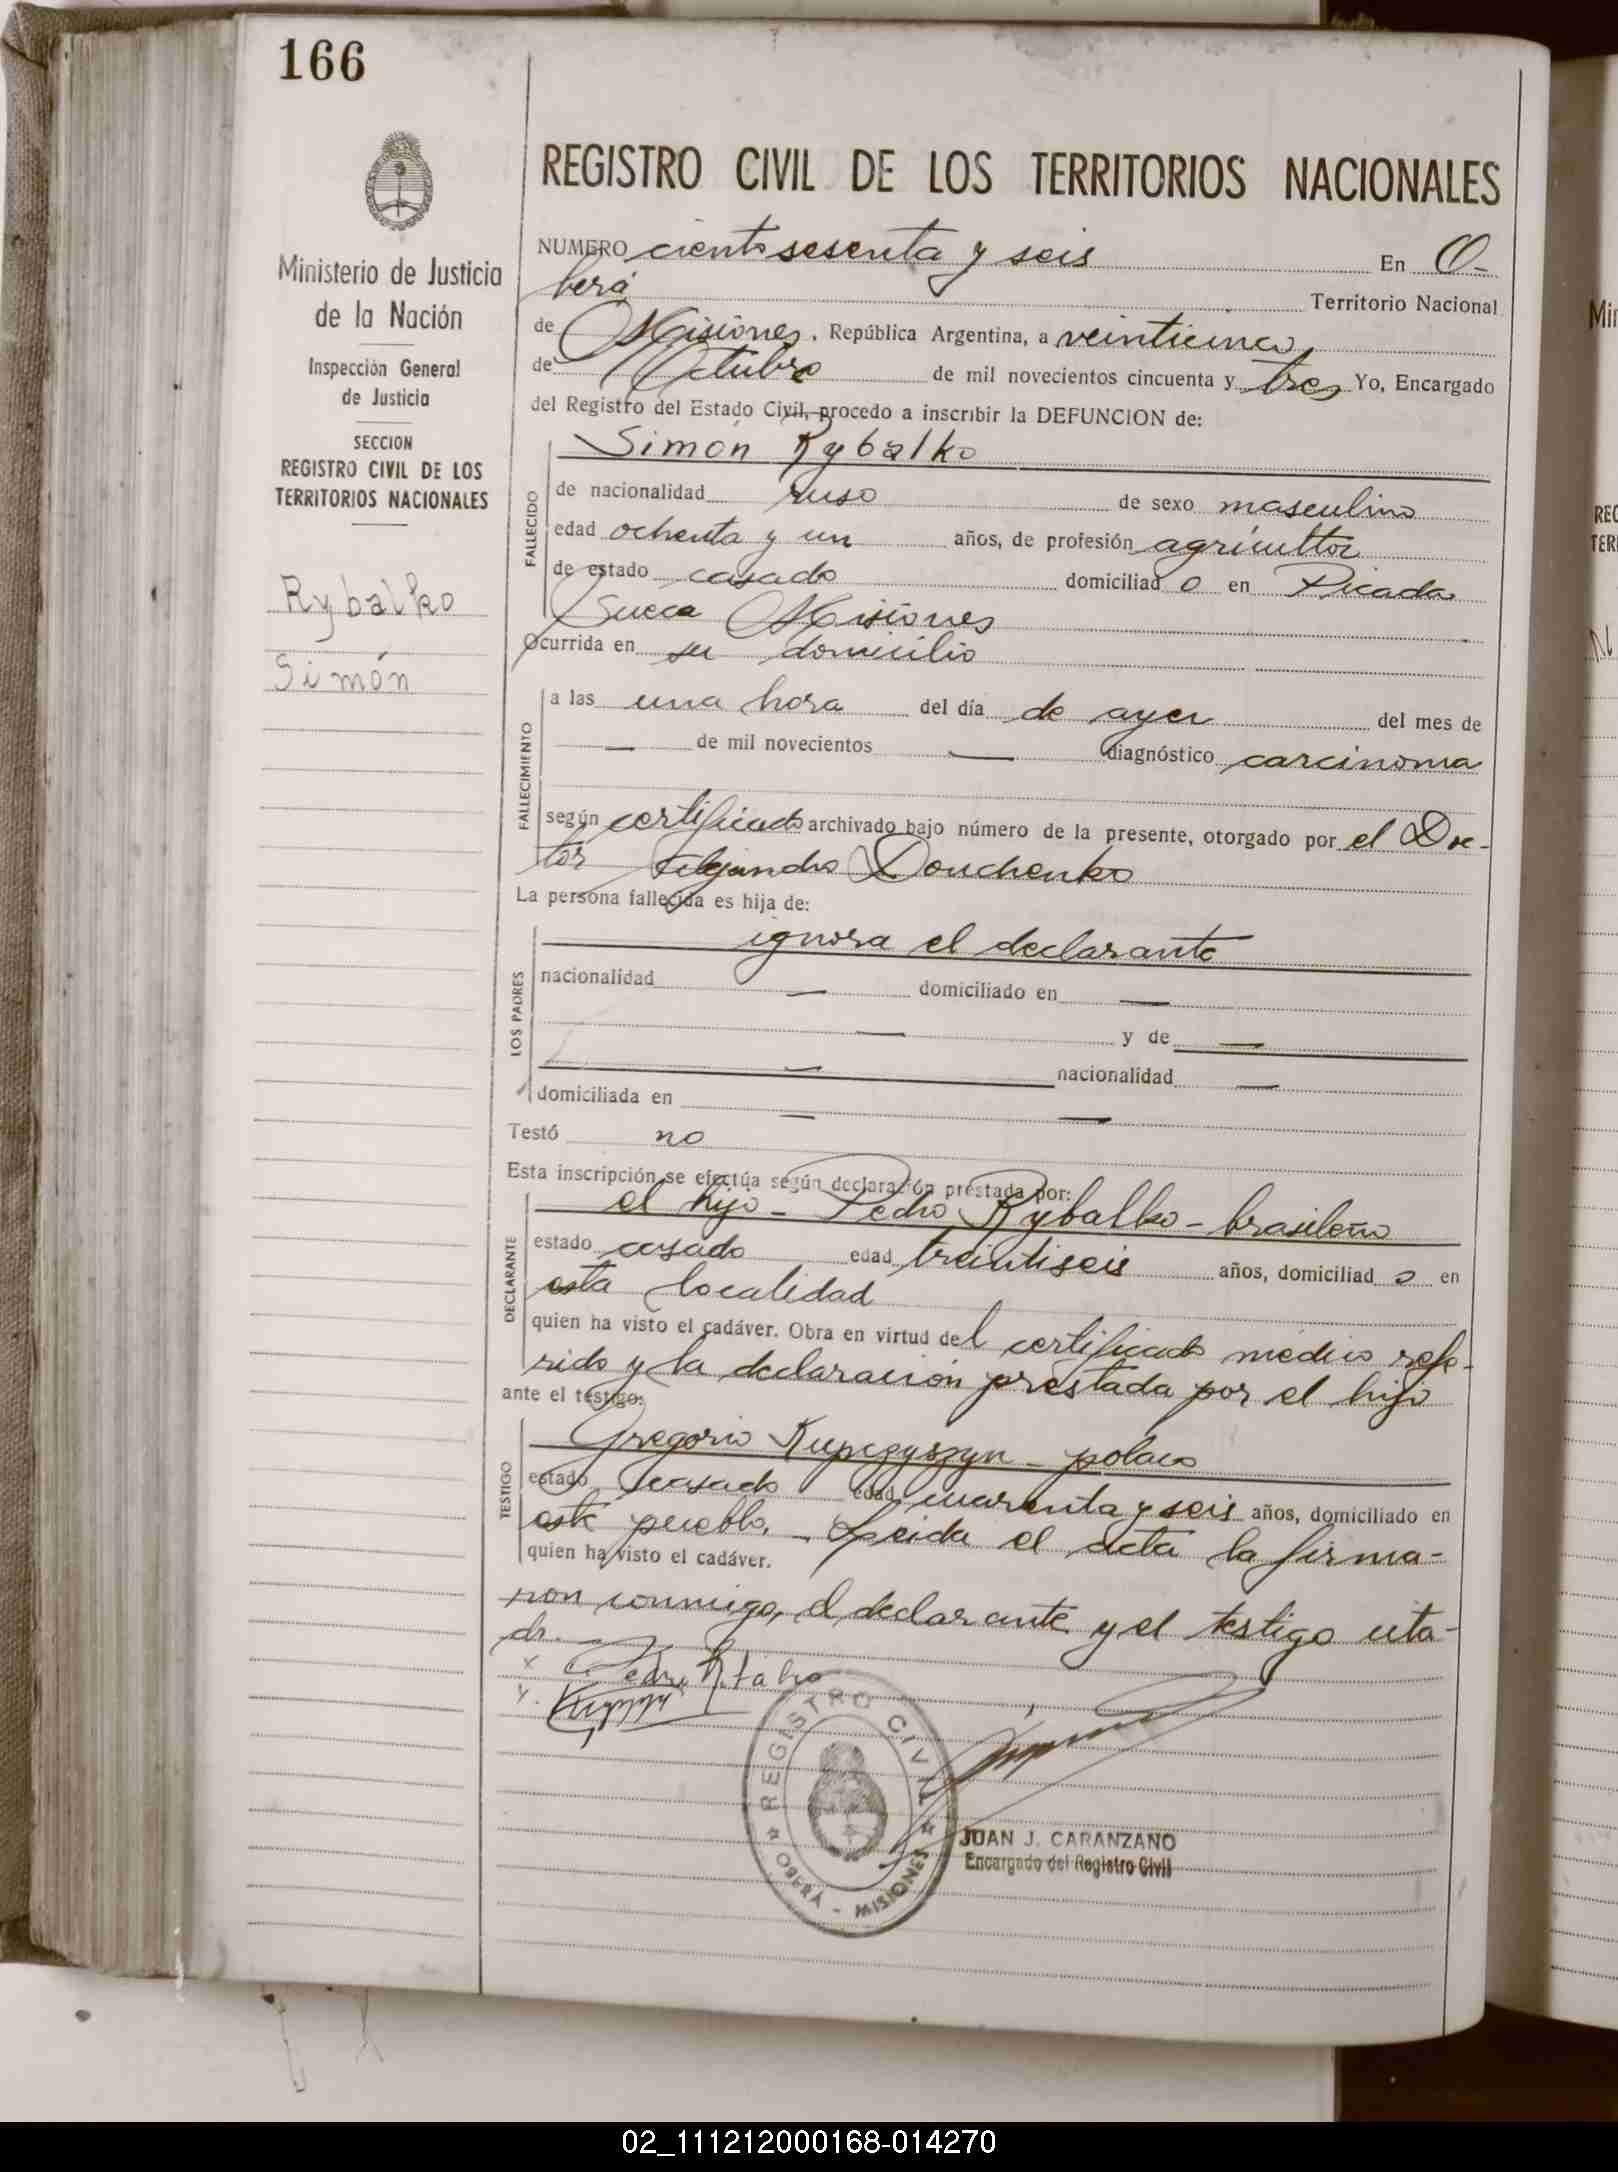 166
Ministerio de Justicia
de la Nación
Inspección General
de Justicia
SECCION
REGISTRO CIVIL DE LOS
TERRITORIOS NACIONALES
Rybalko
Simón
REGISTRO CIVIL DE LOS TERRITORIOS NACIONALES
NUMERO ciento sesenta y seis En O-
berá Territorio Nacional
de Misiones. República Argentina, a veinticinco
de Octubre de mil novecientos cincuenta y tres Yo, Encargado
del Registro del Estado Civil, procedo a inscribir la DEFUNCION de:
FALLECIDO
Simón Rybalko
de nacionalidad ruso de sexo masculino
edad ochenta y un años, de profesión agricultor
de estado casado domiciliado en Picada
Sueca Misiones
Ocurrida en su domicilio
FALLECIMIENTO
a las una hora del día de ayer del mes de
— de mil novecientos — diagnóstico carcinoma
según certificado archivado bajo número de la presente, otorgado por el Doc-
tor Alejandro Douchenko
La persona fallecida es hija de:
LOS PADRES
ignora el declarante
nacionalidad — domiciliado en —
— y de —
— nacionalidad —
domiciliada en — —
Testó no
Esta inscripción se efectúa según declaración prestada por:
DECLARANTE
el hijo - Pedro Rybalko - brasileño
estado casado edad treintiseis años, domiciliado en
esta localidad
quien ha visto el cadáver. Obra en virtud del certificado médico refe-
rido y la declaración prestada por el hijo
ante el testigo:
TESTIGO
Gregorio Kupczyszyn - polaco
estado casado edad cuarenta y seis años, domiciliado en
este pueblo. - Leida el acta la firma-
quien ha visto el cadáver.
ron conmigo, el declarante y el testigo cita-
do. -
x Pedro
REGISTRO CIVIL
OBERÁ - MISIONES
JUAN J. CARANZANO
Encargado del Registro Civil
02_111212000168-014270